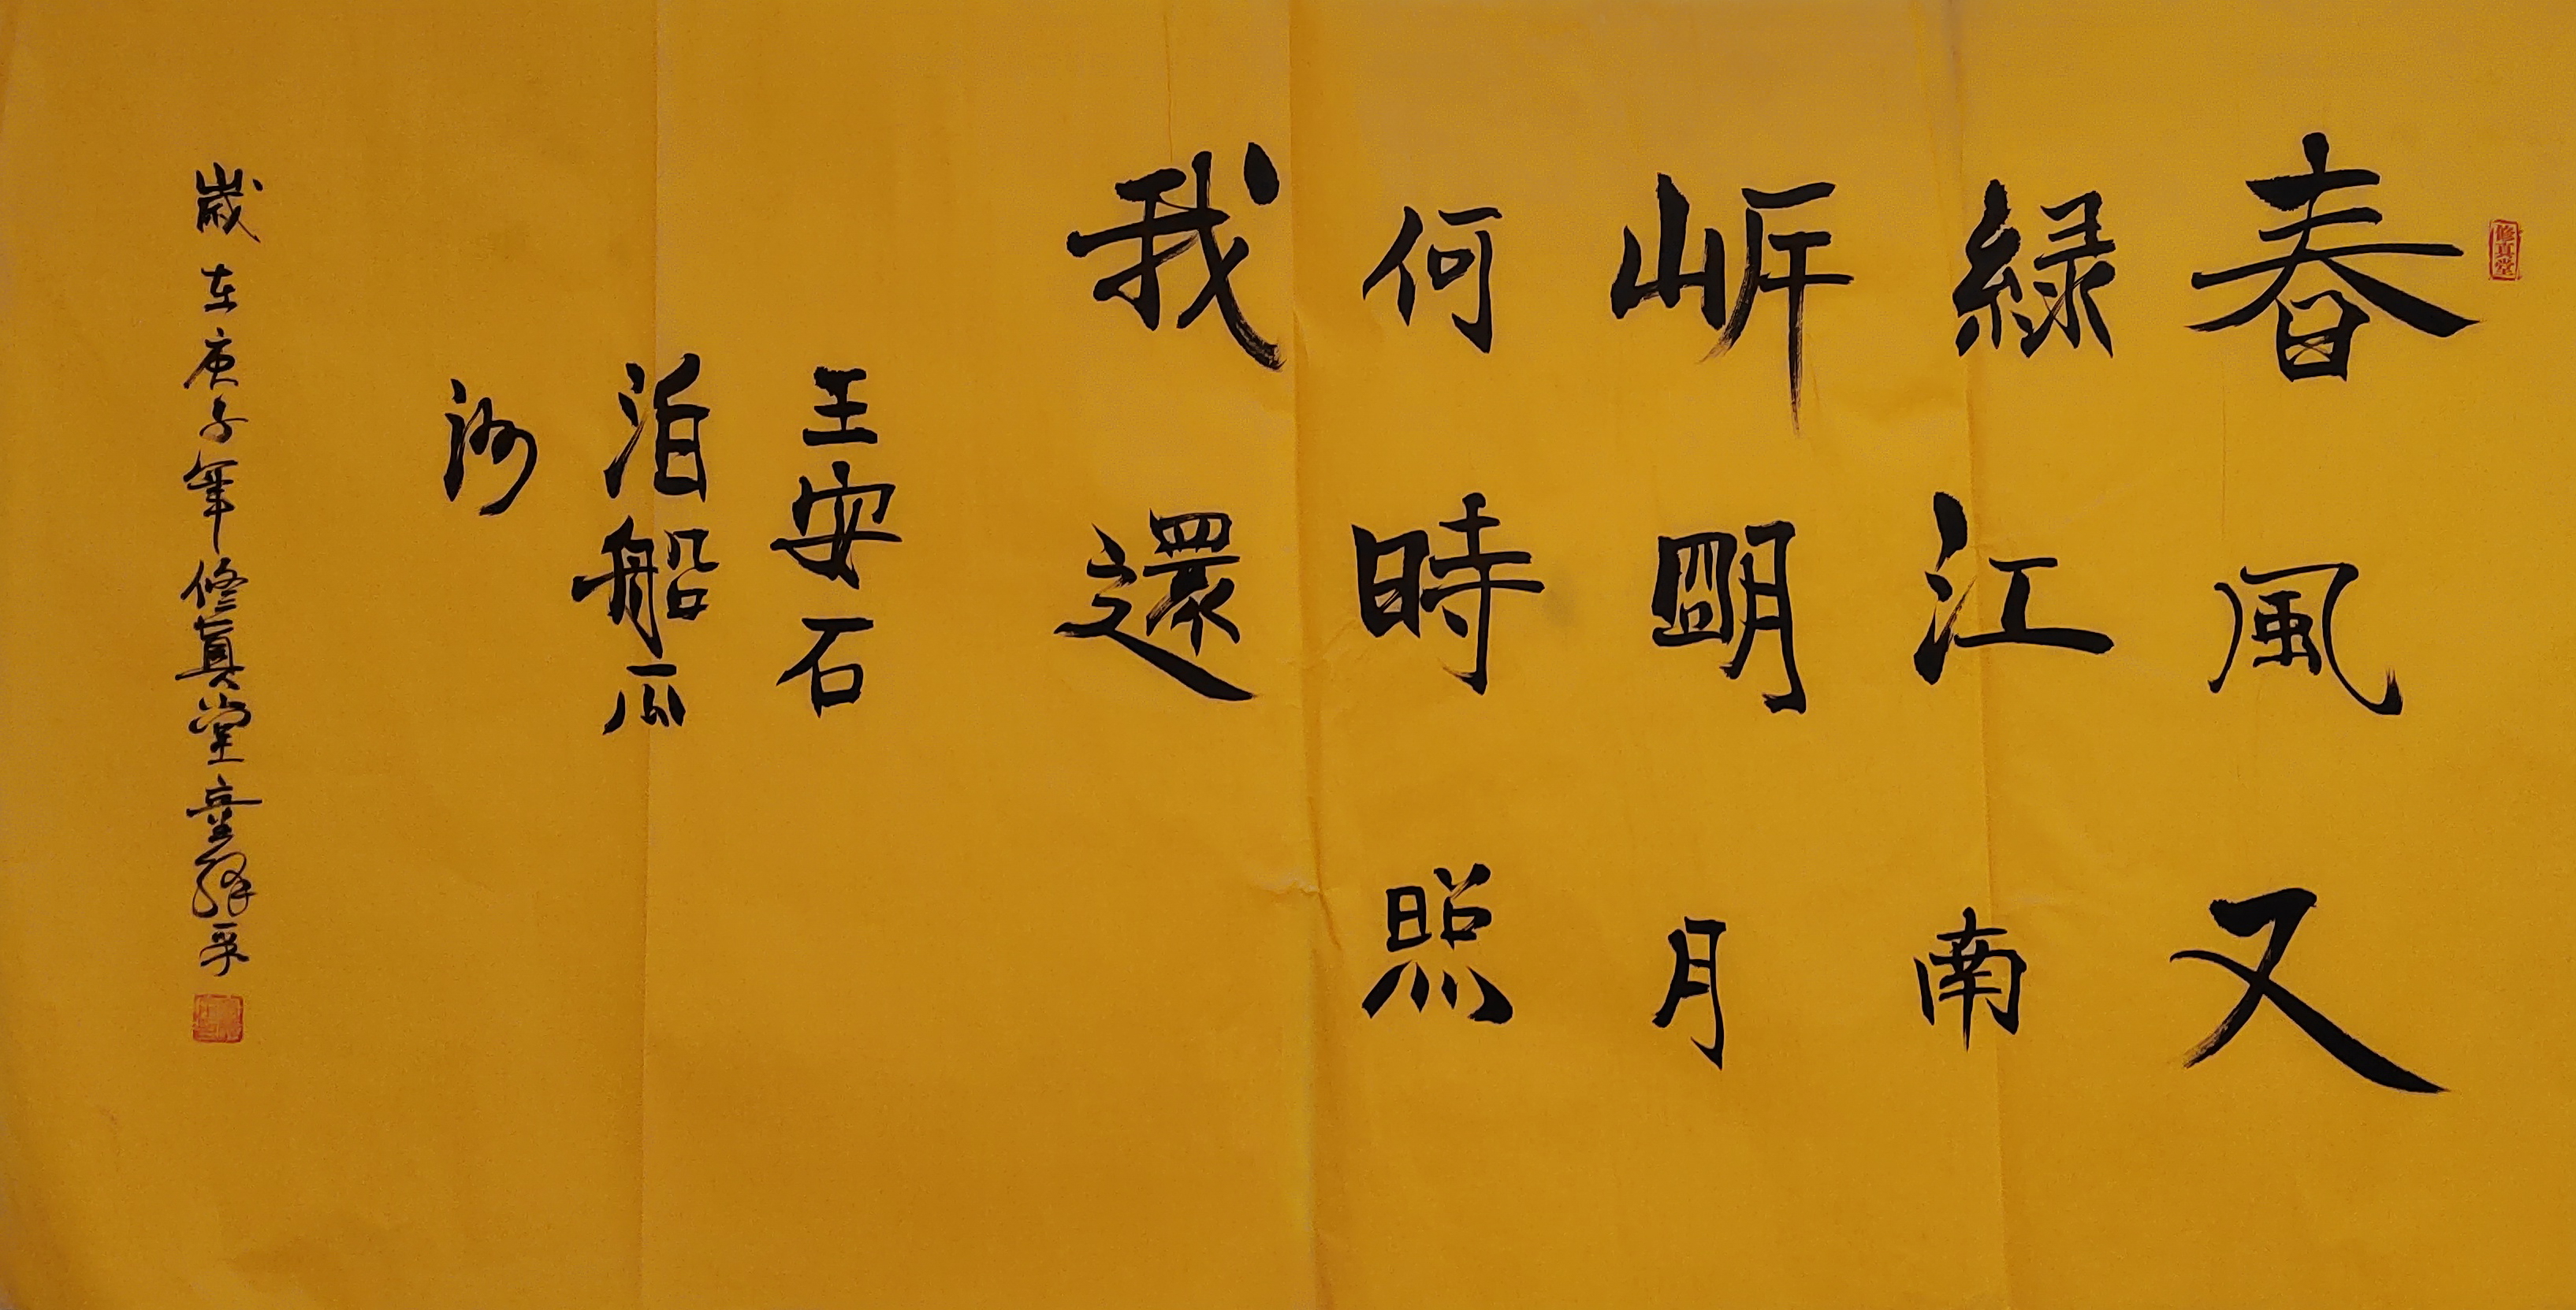 修真堂
春風又
緑江南
岍明月
何時照
我還
王安石
泊船瓜
洲
歲在庚子年修真堂童釋孚